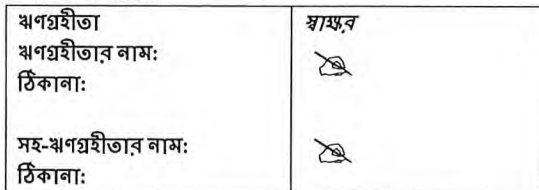 ঋণগ্রহীতা
ঋণগ্রহীতার নাম:
ঠিকানা:
সহ-ঋণগ্রহীতার নাম:
ঠিকানা:
স্বাক্ষর